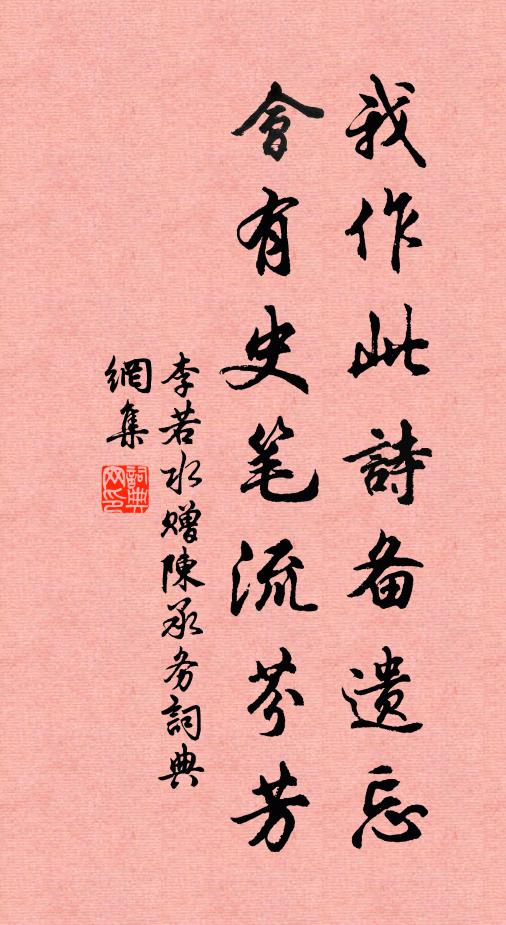 我作此詩备遗忘
會有史笔流芬芳
李若水赠陳承务詞典
網集
詞典网印